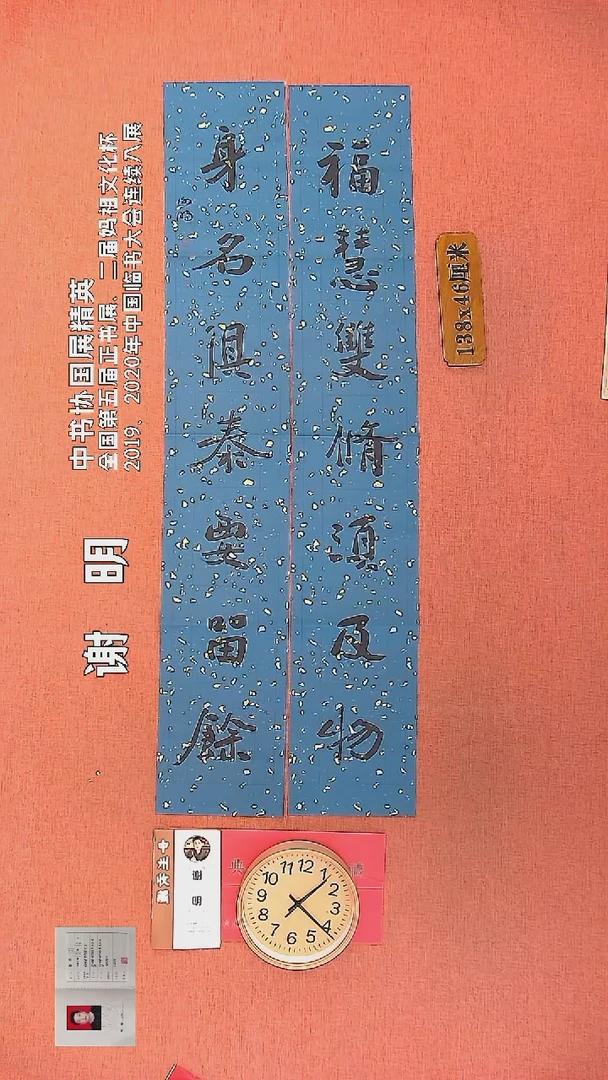 福慧雙脩須及物
身名俱泰要留餘
138x46厘米
谢 明
中书协国展精英
全国第五届正书展、二届妈祖文化杯
2019、2020年中国临书大会连续入展
12
1
2
3
4
5
6
7
8
9
10
11
典